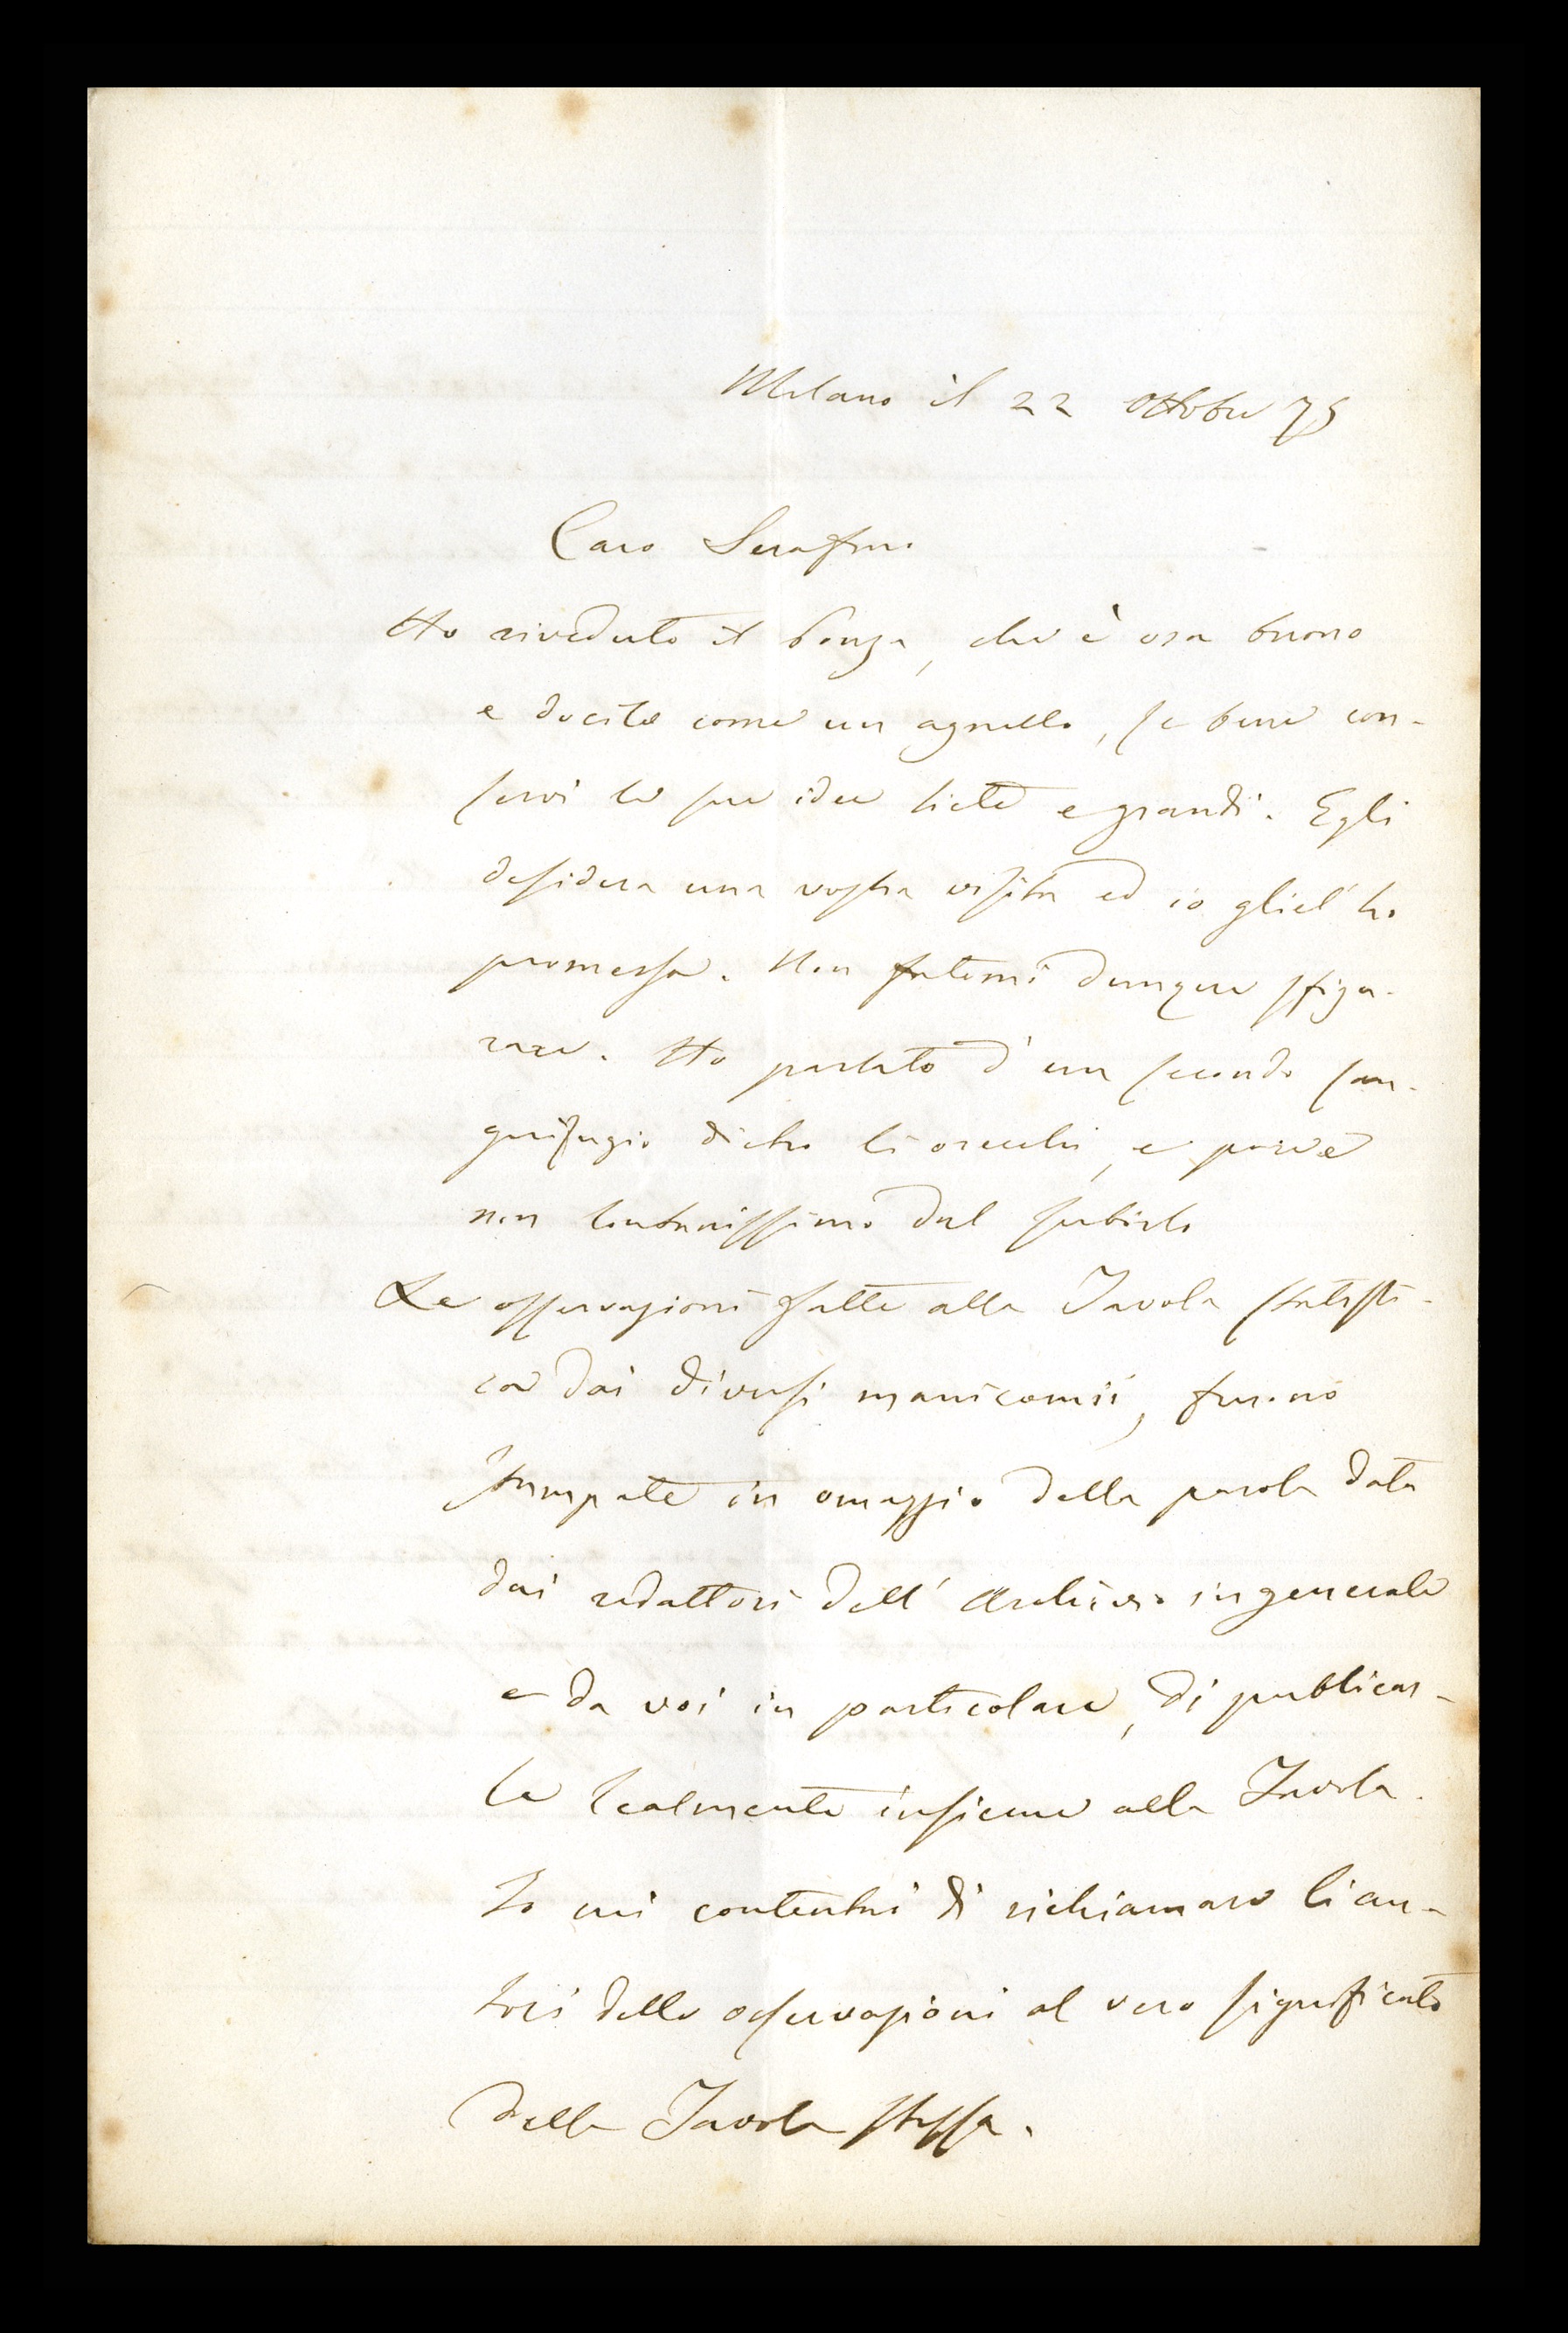 Milano il 22 Ottobre 75
Caro Serafino
Ho riveduto il Bonza, che è ora buono
e docile come un agnello, se bene con-
servi le sue idee liete e grandi. Egli
desidera una vostra visita ed io gliel'ho
promessa. Non fatemi dunque sfigu-
rare. Ho parlato d'un secondo san-
guifugio dietro li orecchi, e parve
non lontanissimo dal subirlo
Le osservazioni fatte alla Tavola statisti-
ca dai diversi manicomii, furono
stampate in omaggio della parola data
dai redattori dell'Archivio in generale
e da voi in particolare, di publicar-
le lealmente insieme alla Tavola.
Io mi contentai di richiamare li au-
tori delle osservazioni al vero significato
della Tavola stessa.